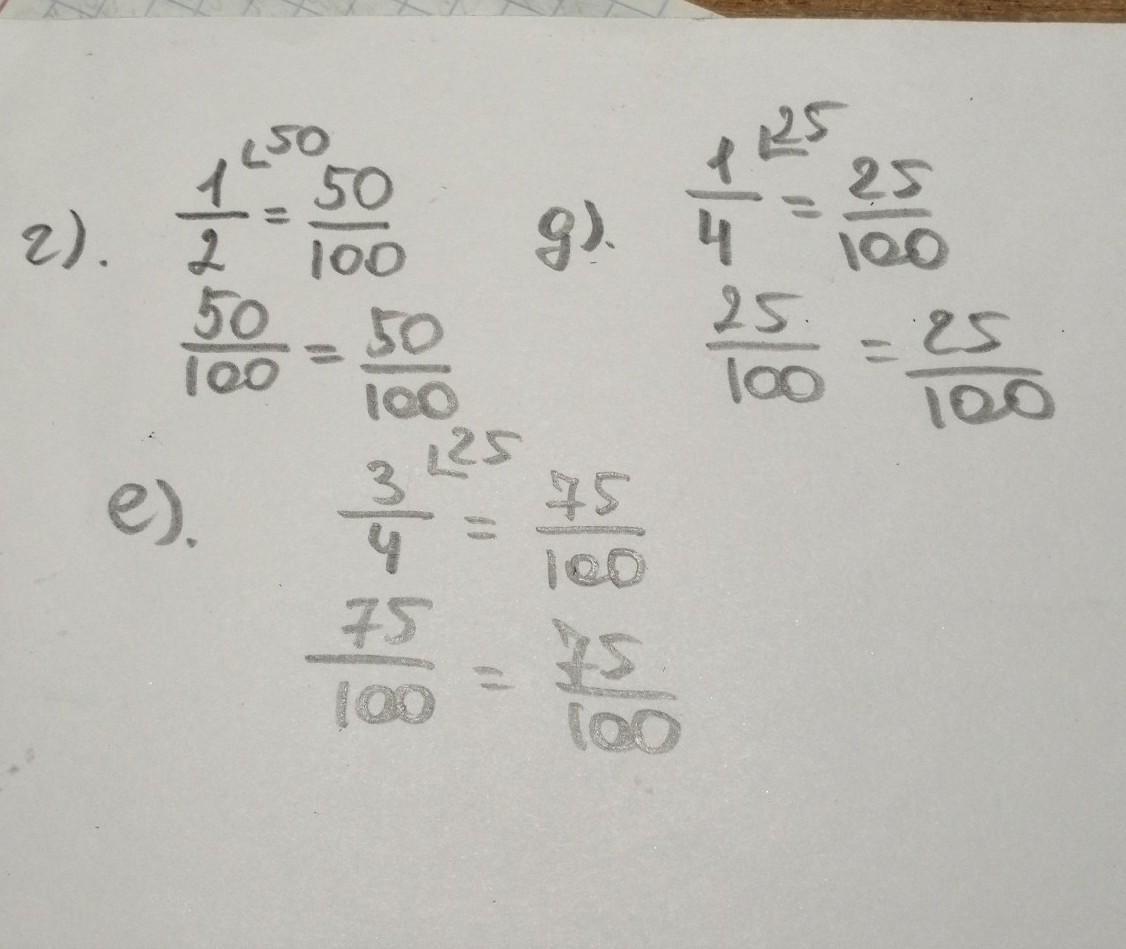 г). 1/2 ∟50 = 50/100
50/100 = 50/100
д). 1/4 ∟25 = 25/100
25/100 = 25/100
е). 3/4 ∟25 = 75/100
75/100 = 75/100